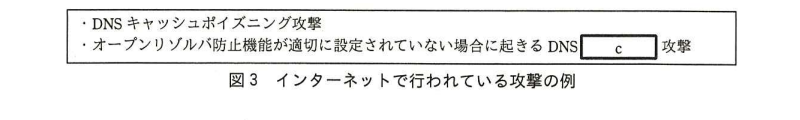 ・DNS キャッシュポイズニング攻撃
・オープンリゾルバ防止機能が適切に設定されていない場合に起きる DNS c 攻撃
図3 インターネットで行われている攻撃の例